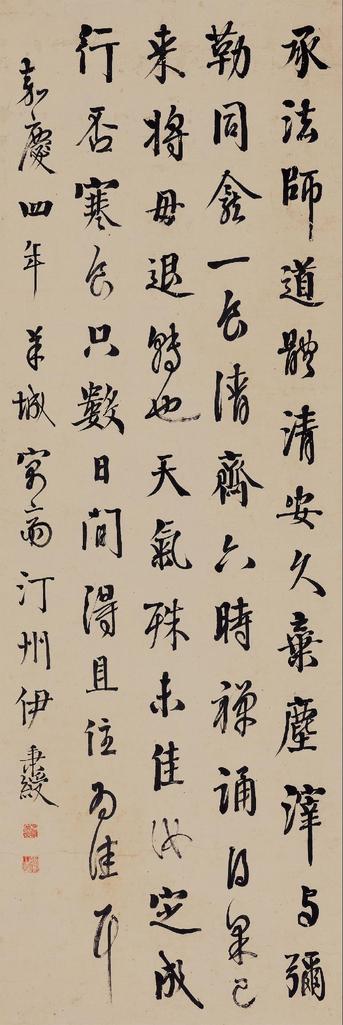 承法師道體清安久棄塵滓与彌
勒同龕一食清齊六時禅誦得果已
来将毋退轉也天氣殊未佳汝定成
行否寒食只數日間得且住为佳耳
嘉慶四年羊城寓齋汀州伊秉綬